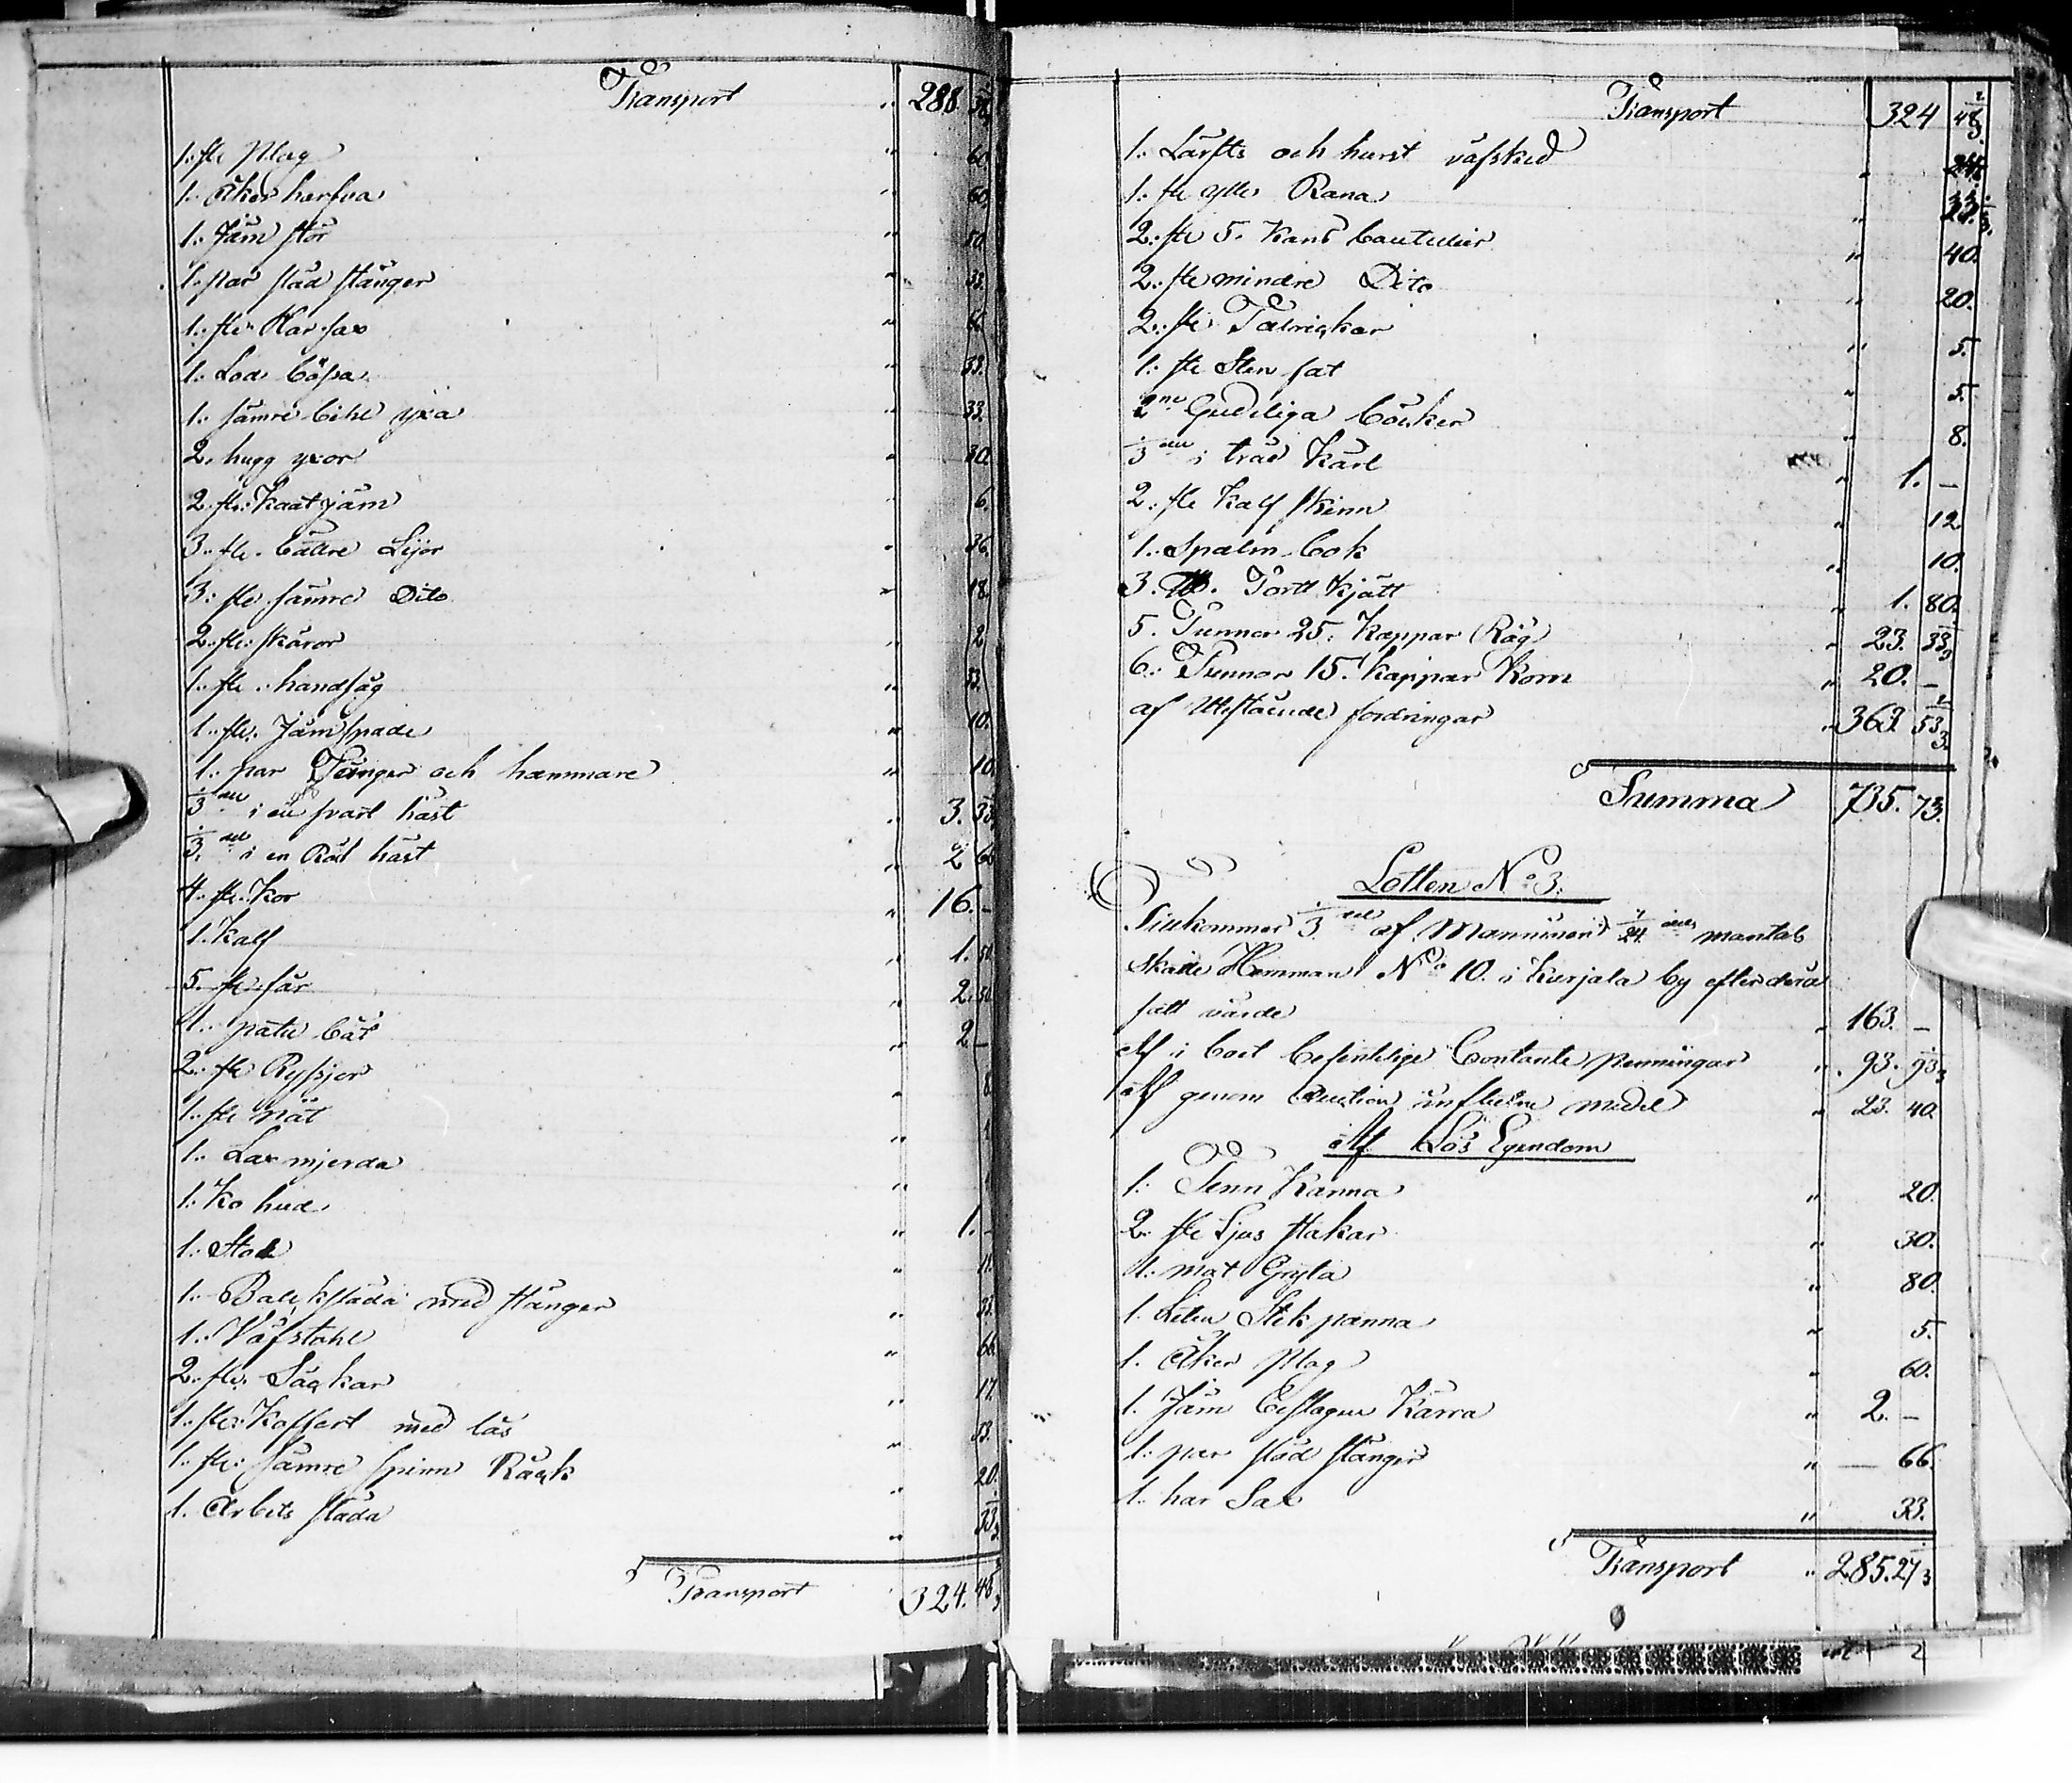 Transport " 288.
1: ste Plog " 60
1. Åker harfva " 60
1: Järn stör " 50
1. par släd stänger " 33.
1: ste Kar sax "
1. Lod bössa " 33.
1. sämre bihl yxa " 33.
2. hugg yxor " 30.
2. ste: Kaat järn 6.
3. ste. bättre Lijor " 36.
3: ste sämre Dito " 18.
2. ste: skäror " 2
1. ste. handsåg " 33.
1. ste. Järn spade " 10.
1. par Tänger och hammare " 10.
1/3 del i en svart häst " 3. 33
1/3 del i en Röd häst " 2 66
4. ste. Kor " 16. –
1. Kalf " 1. 50
5. ste får " 2. 50
1. båt " 2 –
2. ste Ryssjor " 8
1. ste nät "
1. Lax mjerda "
1. Ko hud " 1. –
1. "
1. släda med stänger " 33.
1. Väfstohl " 66.
2. ste. Säckar " 17.
1. ste. Koffert med lås " 33.
1. ste: sämre spinn Råck " 20.
1. Arbets släda " 33
Transport 324. 48
Transport 324 48 2/3
1. Lärfts och hurst väfsked " 24.
1. ste ylle Rana "
2. ste 5. Kans bouteiller " 40.
2. ste mindre Dito " 20.
2. ste Talrickar " 5.
1. ste Sten fat " 5.
2ne Gudeliga böcker " 8.
1/3 del i träd Kärl " 1. –
2. ste Kalf skinn " 12
1. Spalm bok " 10.
3. Torrt kjött " 1. 80.
5. Tunnor 25. Kappar Råg " 23. 33
6. Tunnor 15. Kappar Korn " 20. –
af Utestående fordringar " 363. 53 2/3
Summa 735. 73.
Lotten No 3.
Tillkommer 1/3 del af Manninen 1/24 dels mantals
skatte Hemman No 10. i Kurjala by efter dess
satt värde " 163. –
Af i boet befintlige Contante penningar " 93. 93
Af genom Auction influtne medel " 23. 40.
Af Lös Egendom
1. Tenn Kanna " 20.
2. ste Ljus stakar " 30.
1. mat Gryta " 80.
1. Liten Stek panna " 5.
1. Åker Plog " 60.
1. Järn beslagen Kärra " 2. –
1. par släd stänger " — 66.
1. har Sax " 33.
Transport " 285. 27 1/3